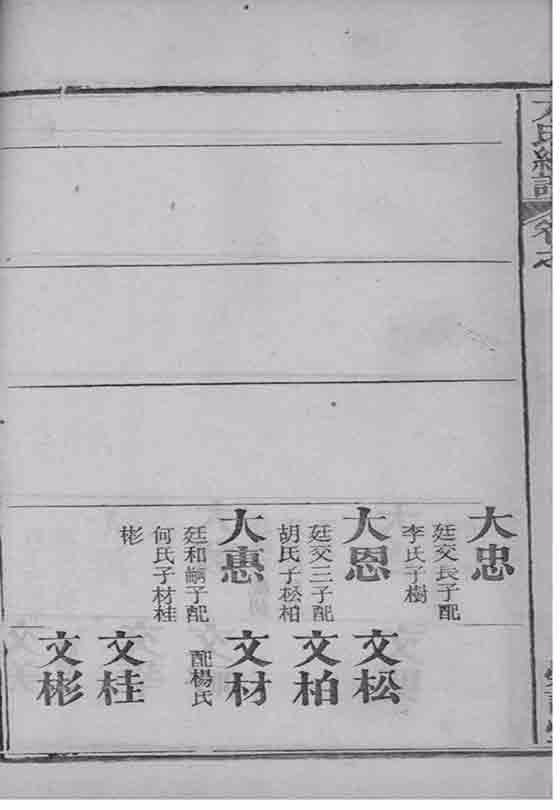 大忠
廷交長子配
李氏子樹
大恩
廷交三子配
胡氏子松柏
大惠
廷和嗣子配
何氏子材桂
彬
文松
文柏
文材
配楊氏
文桂
文彬